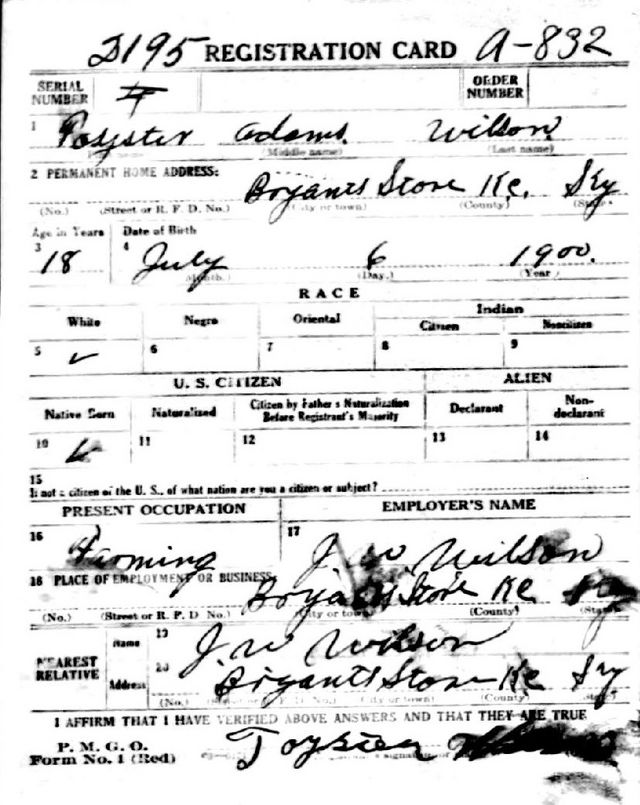 2195 REGISTRATION CARD A-832
SERIAL NUMBER
ORDER NUMBER
1 Adams Wilson
(Middle name) (Last name)
2 PERMANENT HOME ADDRESS:
Bryants Store Ke. Sky
(No.) (Street or R. F. D. No.) (City or town) (County) (State)
Age in Years Date of Birth
3 18 4 July 6 1900.
(Month.) (Day.) (Year)
RACE
White Negro Oriental Indian
Citizen Noncitizen
5 ✓ 6 7 8 9
U. S. CITIZEN ALIEN
Native Born Naturalized Citizen by Father's Naturalization Before Registrant's Majority Declarant Non-declarant
10 ✓ 11 12 13 14
15
If not a citizen of the U. S., of what nation are you a citizen or subject?
PRESENT OCCUPATION EMPLOYER'S NAME
16 Farming 17 J. W. Wilson
18 PLACE OF EMPLOYMENT OR BUSINESS:
Bryants Store Ke
(No.) (Street or R. F. D. No.) (City or town) (County) (State)
NEAREST RELATIVE
Name 19 J. W Wilson
Address 20 Bryants Store Ke Sky
(No.) (Street or R. F. D. No.) (City or town) (County) (State)
I AFFIRM THAT I HAVE VERIFIED ABOVE ANSWERS AND THAT THEY ARE TRUE
P. M. G. O.
Form No. 1 (Red)